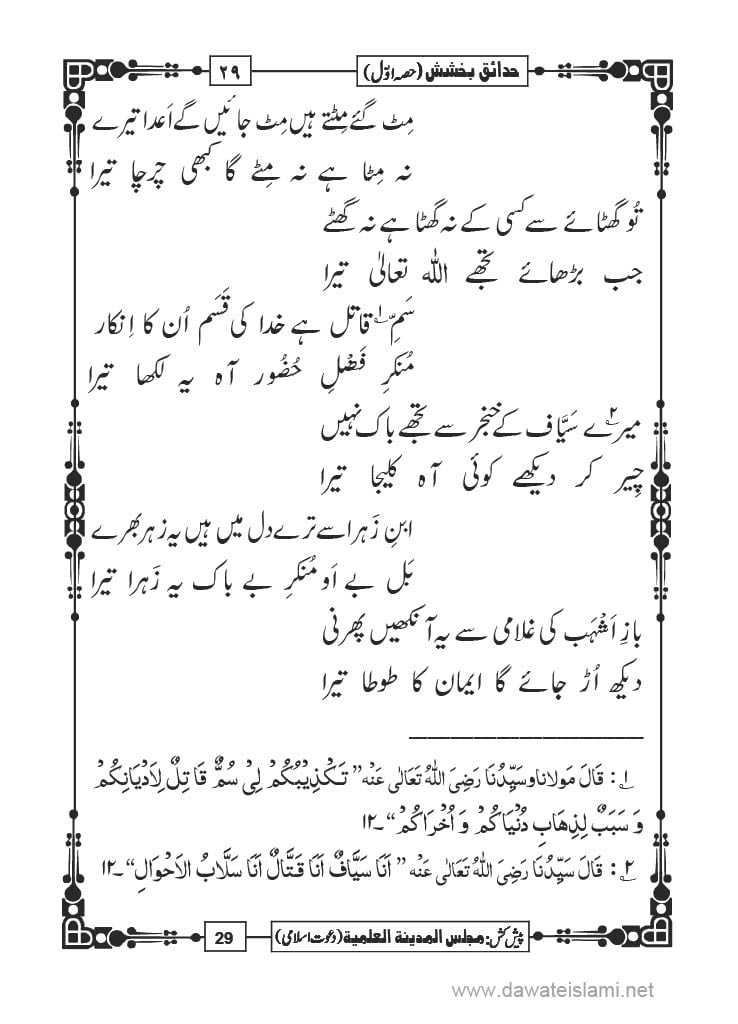 حدائق بخشش (حصہ اوّل)
۲۹
مِٹ گئے مِٹتے ہیں مِٹ جائیں گے اَعدا تیرے
نہ مِٹا ہے نہ مِٹے گا کبھی چرچا تیرا
تُو گھٹائے سے کسی کے نہ گھٹا ہے نہ گھٹے
جب بڑھائے تجھے اللہ تعالیٰ تیرا
سَمِّ ۱؎ قاتل ہے خدا کی قَسَم اُن کا اِنکار
مُنکرِ فَضْلِ حُضُور آہ یہ لکھا تیرا
میرے ۲؎ سَیَّاف کے خنجر سے تجھے باک نہیں
چِیر کر دیکھے کوئی آہ کلیجا تیرا
ابنِ زَہرا سے ترے دل میں ہیں یہ زہر بھرے
بَل بے اَو مُنکرِ بے باک یہ زَہرا تیرا
بازِ اَشْہَب کی غلامی سے یہ آنکھیں پھرنی
دیکھ اُڑ جائے گا ایمان کا طوطا تیرا
۱؎ : قَالَ مَولانا وسَیِّدُنَا رَضِیَ اللّٰہُ تَعَالٰی عَنْہ ”تَکْذِیْبُکُمْ لِیْ سُمٌّ قَاتِلٌ لِاَدْیَانِکُمْ
وَ سَبَبٌ لِذِھَابِ دُنْیَاکُمْ وَ اُخْرَاکُمْ“۔۱۲
۲؎ : قَالَ سَیِّدُنَا رَضِیَ اللّٰہُ تَعَالٰی عَنْہ ”اَنَا سَیَّافٌ اَنَا قَتَّالٌ اَنَا سَلَّابُ الْاَحْوَالِ“۔۱۲
پیش کش: مجلس المدینۃ العلمیۃ (دعوتِ اسلامی)
29
www.dawateislami.net